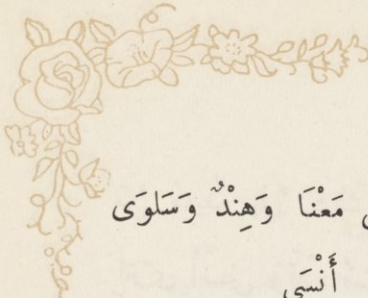 مَعْنَا وَهِنْدٌ وَسَلوَى
أَنْسَى